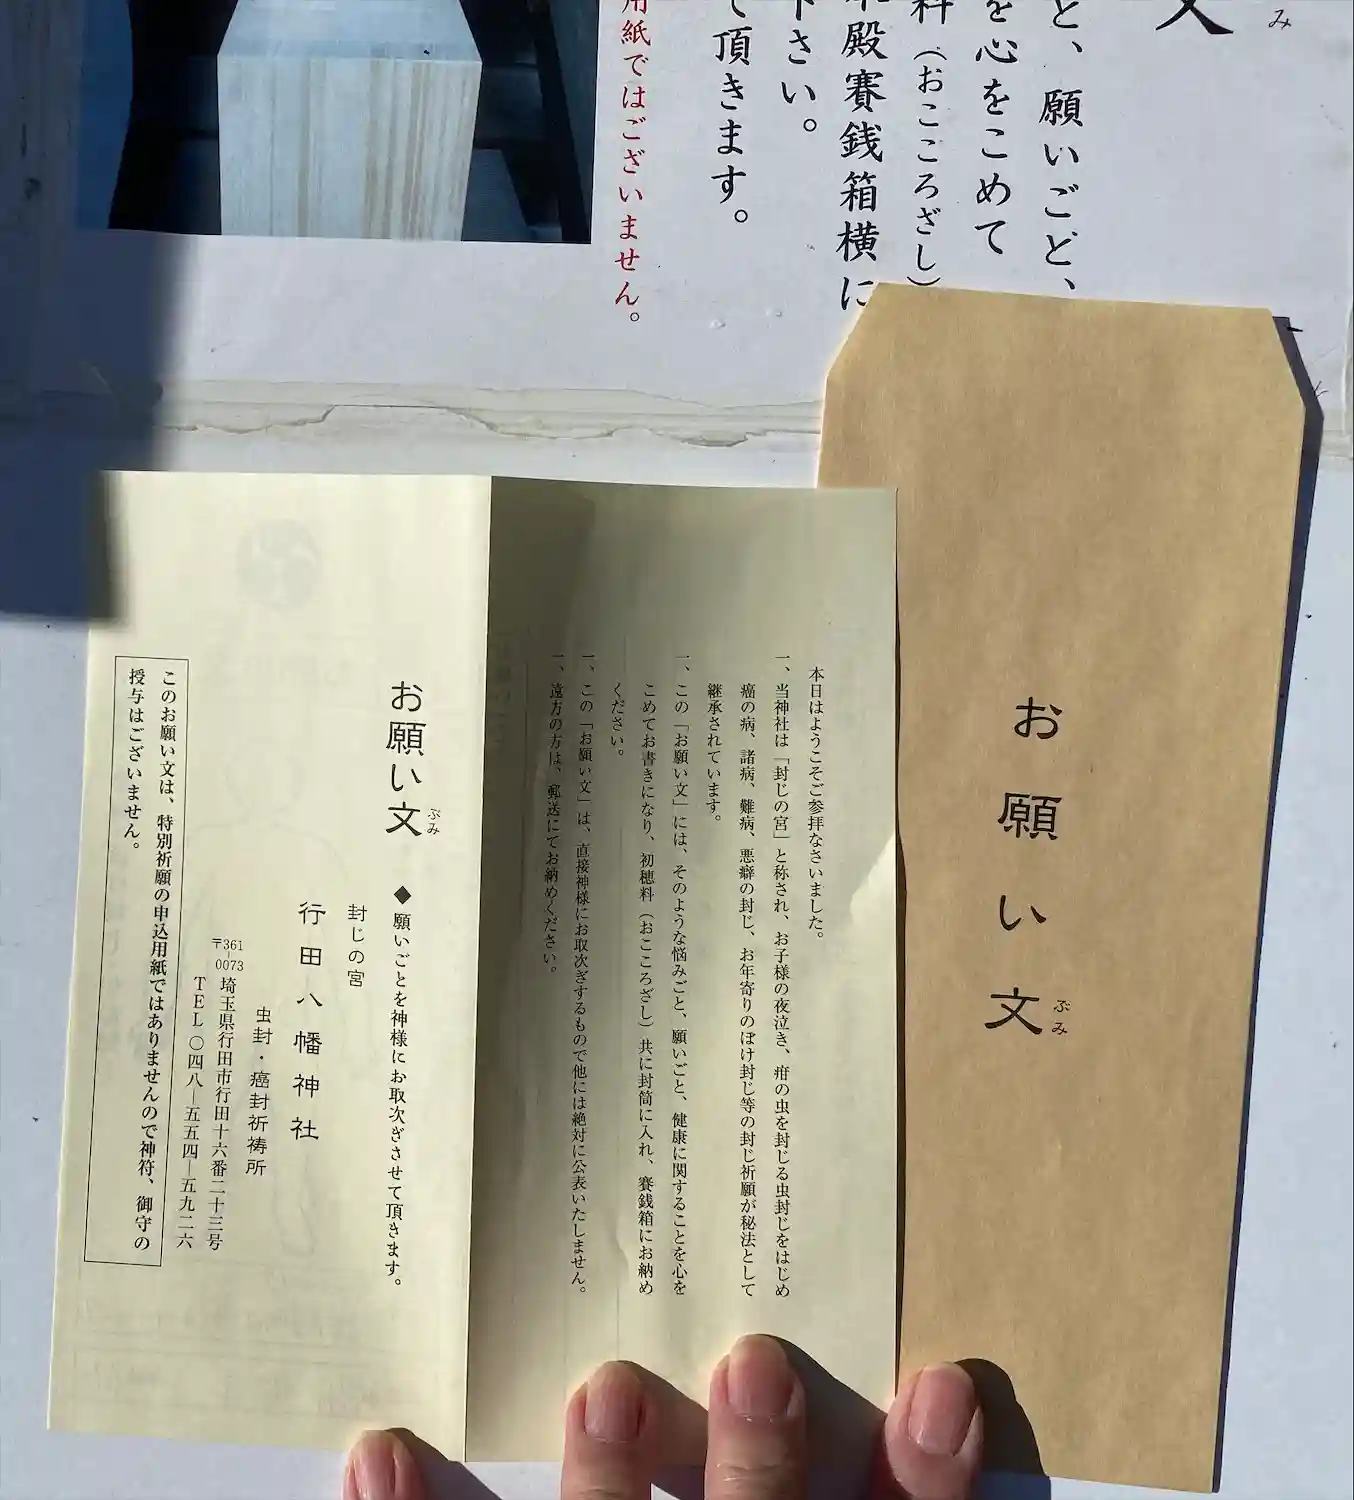 文
み
と、願いごと、
を心をこめて
料（おこころざし）
本殿賽銭箱横に
下さい。
て頂きます。
用紙ではございません。
お願い文
ぶみ
本日はようこそご参拝なさいました。
一、当神社は「封じの宮」と称され、お子様の夜泣き、疳の虫を封じる虫封じをはじめ
癌の病、諸病、難病、悪癖の封じ、お年寄りのぼけ封じ等の封じ祈願が秘法として
継承されています。
一、この「お願い文」には、そのような悩みごと、願いごと、健康に関することを心を
こめてお書きになり、初穂料（おこころざし）共に封筒に入れ、賽銭箱にお納め
ください。
一、この「お願い文」は、直接神様にお取次ぎするもので他には絶対に公表いたしません。
一、遠方の方は、郵送にてお納めください。
お願い文 ◆願いごとを神様にお取次ぎさせて頂きます。
ぶみ
封じの宮
行田八幡神社
虫封・癌封祈祷所
〒361-0073 埼玉県行田市行田十六番二十三号
TEL〇四八―五五四―五九二六
このお願い文は、特別祈願の申込用紙ではありませんので神符、御守の
授与はございません。